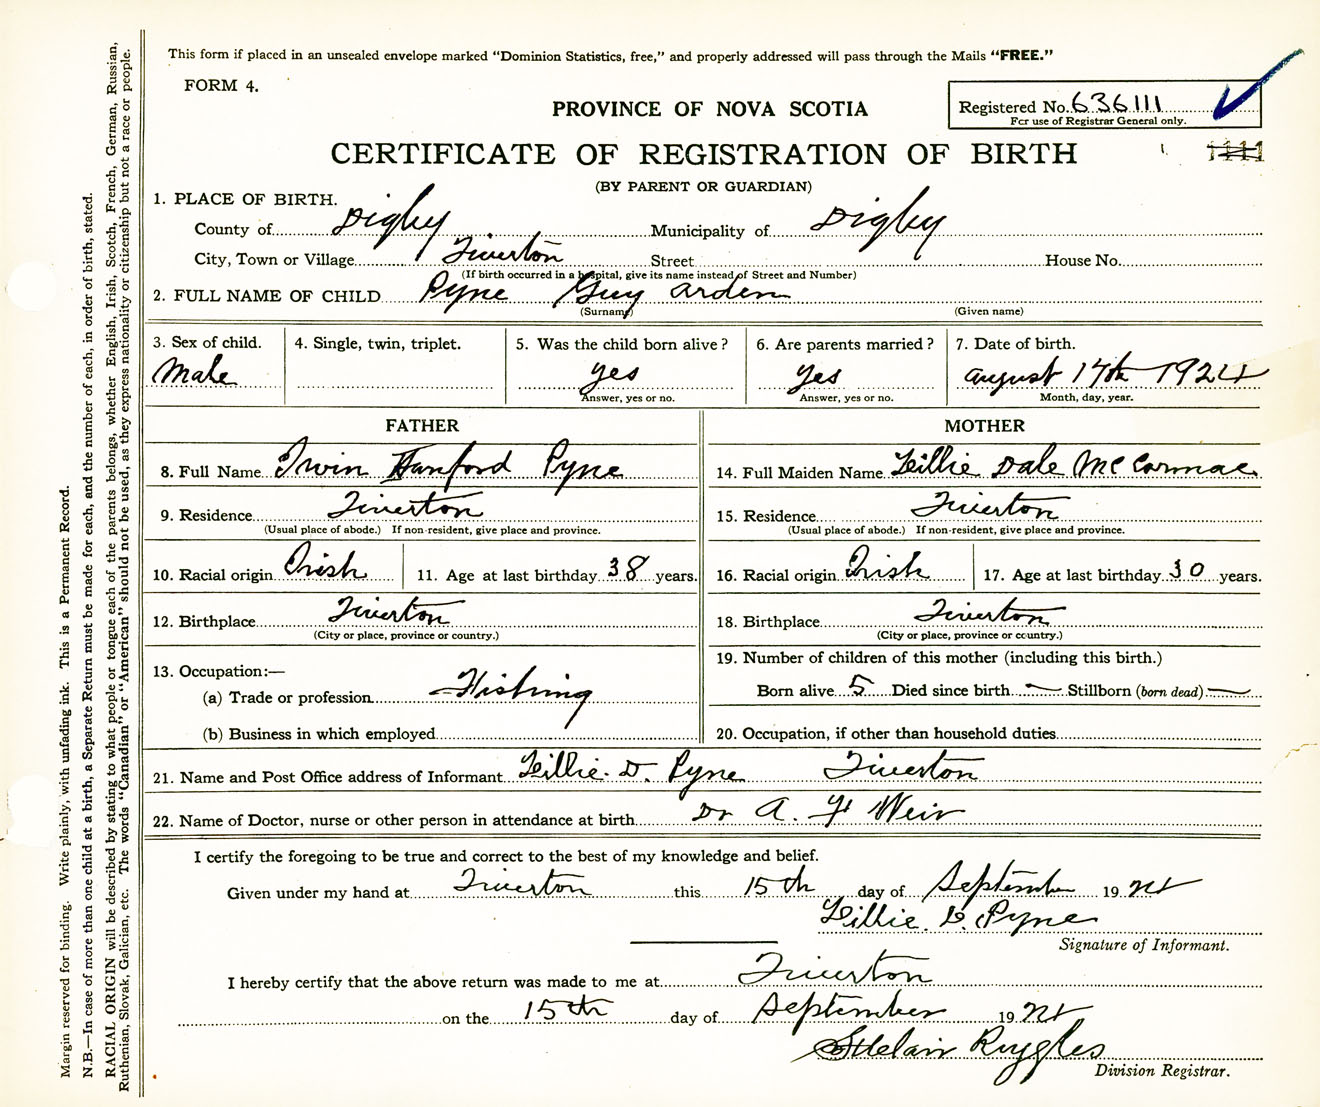 This form if placed in an unsealed envelope marked “Dominion Statistics, free,” and properly addressed will pass through the Mails “FREE.”
FORM 4.
PROVINCE OF NOVA SCOTIA
Registered No. 636111
For use of Registrar General only.
CERTIFICATE OF REGISTRATION OF BIRTH
1111
(BY PARENT OR GUARDIAN)
1. PLACE OF BIRTH.
County of Digby Municipality of Digby
City, Town or Village Tiverton Street House No.
(If birth occurred in a hospital, give its name instead of Street and Number)
2. FULL NAME OF CHILD Pyne Guy Arden
(Surname) (Given name)
3. Sex of child. 4. Single, twin, triplet. 5. Was the child born alive? 6. Are parents married? 7. Date of birth.
Male yes yes August 17th 1924
Answer, yes or no. Answer, yes or no. Month, day, year.
FATHER MOTHER
8. Full Name Irwin Hanford Pyne 14. Full Maiden Name Lillie Dale McCormac
9. Residence Tiverton 15. Residence Tiverton
(Usual place of abode.) If non-resident, give place and province. (Usual place of abode.) If non-resident, give place and province.
10. Racial origin Irish 11. Age at last birthday 38 years. 16. Racial origin Irish 17. Age at last birthday 30 years.
12. Birthplace Tiverton 18. Birthplace Tiverton
(City or place, province or country.) (City or place, province or country.)
13. Occupation:— 19. Number of children of this mother (including this birth.)
(a) Trade or profession Fishing Born alive 5 Died since birth — Stillborn (born dead) —
(b) Business in which employed 20. Occupation, if other than household duties
21. Name and Post Office address of Informant Lillie. D. Pyne Tiverton
22. Name of Doctor, nurse or other person in attendance at birth Dr A. F Weir
I certify the foregoing to be true and correct to the best of my knowledge and belief.
Given under my hand at Tiverton this 15th day of September 1924
Lillie. D. Pyne
Signature of Informant.
I hereby certify that the above return was made to me at Tiverton
on the 15th day of September 1924
Ruggles
Division Registrar.
Margin reserved for binding. Write plainly, with unfading ink. This is a Permanent Record.
N.B.—In case of more than one child at a birth, a Separate Return must be made for each, and the number of each, in order of birth, stated.
RACIAL ORIGIN will be described by stating to what people or tongue each of the parents belongs, whether English, Irish, Scotch, French, German, Russian,
Ruthenian, Slovak, Galician, etc. The words “Canadian” or “American” should not be used, as they express nationality or citizenship but not a race or people.